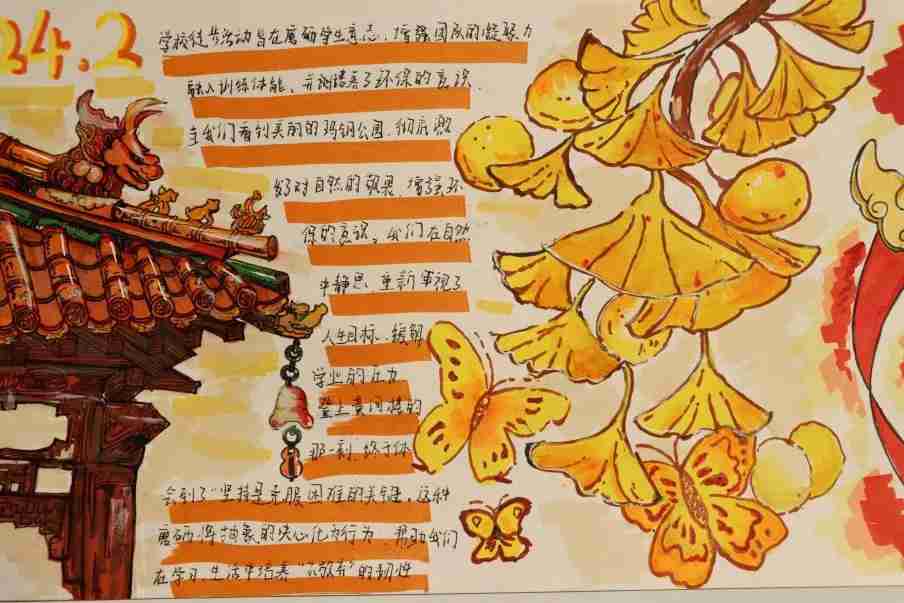 24.2
学校徒步活动旨在磨砺学生意志,增强团队的凝聚力
融入训练体能,并附培养了环保的意识.
当我们看到美丽的玛钢公园,彻底激
发了对自然的敬畏,增强环
保的意识。我们在自然
中静思,重新审视了
人生目标、缓解
学业的压力
登上黄冈梯的
那一刻,终于体
会到了“坚持是克服困难的关键,这种
磨砺,将抽象的决心化为行为,帮助我们
在学习、生活中培养“不放弃”的韧性